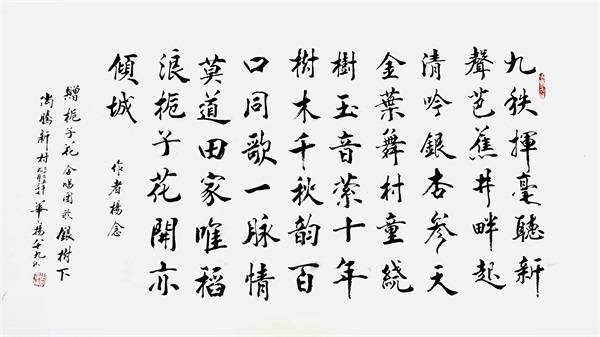 九秩揮毫聽新
聲芭蕉井畔起
清吟銀杏參天
金葉舞村童繞
樹玉音縈十年
樹木千秋韵百
口同歌一脈情
莫道田家唯稻
浪栀子花開亦
傾城
作者楊念
贈栀子花合唱團 銀樹下
尚騰新村